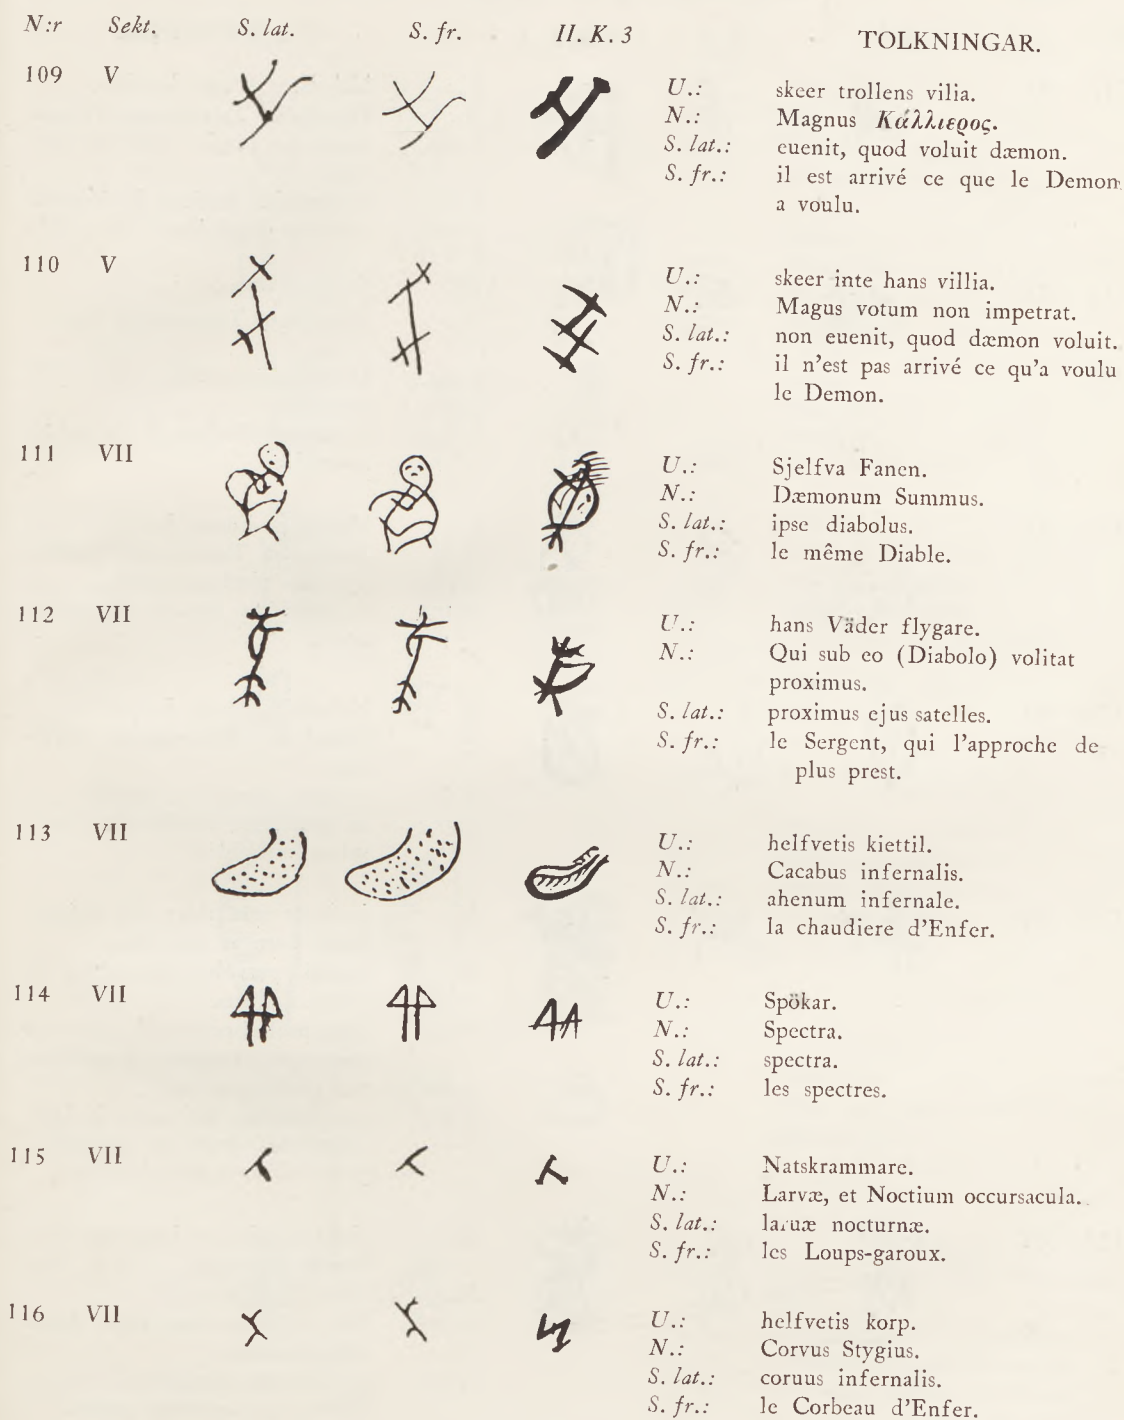 N:r Sekt. S. lat. S. fr. II. K. 3 TOLKNINGAR.
109 V U.: skeer trollens vilia.
N.: Magnus Κάλλιερος.
S. lat.: euenit, quod voluit dæmon.
S. fr.: il est arrivé ce que le Demon
a voulu.
110 V U.: skeer inte hans villia.
N.: Magus votum non impetrat.
S. lat.: non euenit, quod dæmon voluit.
S. fr.: il n'est pas arrivé ce qu'a voulu
le Demon.
111 VII U.: Sjelfva Fanen.
N.: Dæmonum Summus.
S. lat.: ipse diabolus.
S. fr.: le même Diable.
112 VII U.: hans Väder flygare.
N.: Qui sub eo (Diabolo) volitat
proximus.
S. lat.: proximus ejus satelles.
S. fr.: le Sergent, qui l'approche de
plus prest.
113 VII U.: helfvetis kiettil.
N.: Cacabus infernalis.
S. lat.: ahenum infernale.
S. fr.: la chaudiere d'Enfer.
114 VII U.: Spökar.
N.: Spectra.
S. lat.: spectra.
S. fr.: les spectres.
115 VII U.: Natskrammare.
N.: Larvæ, et Noctium occursacula.
S. lat.: laruæ nocturnæ.
S. fr.: les Loups-garoux.
116 VII U.: helfvetis korp.
N.: Corvus Stygius.
S. lat.: coruus infernalis.
S. fr.: le Corbeau d'Enfer.